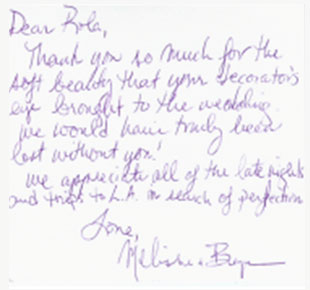 Dear Rola,
Thank you so much for the
soft beauty that your decorator's
eye brought to the wedding.
We would have truly been
lost without you!
We appreciate all of the late nights
and trips to L.A. in search of perfection
Love,
Melissa &